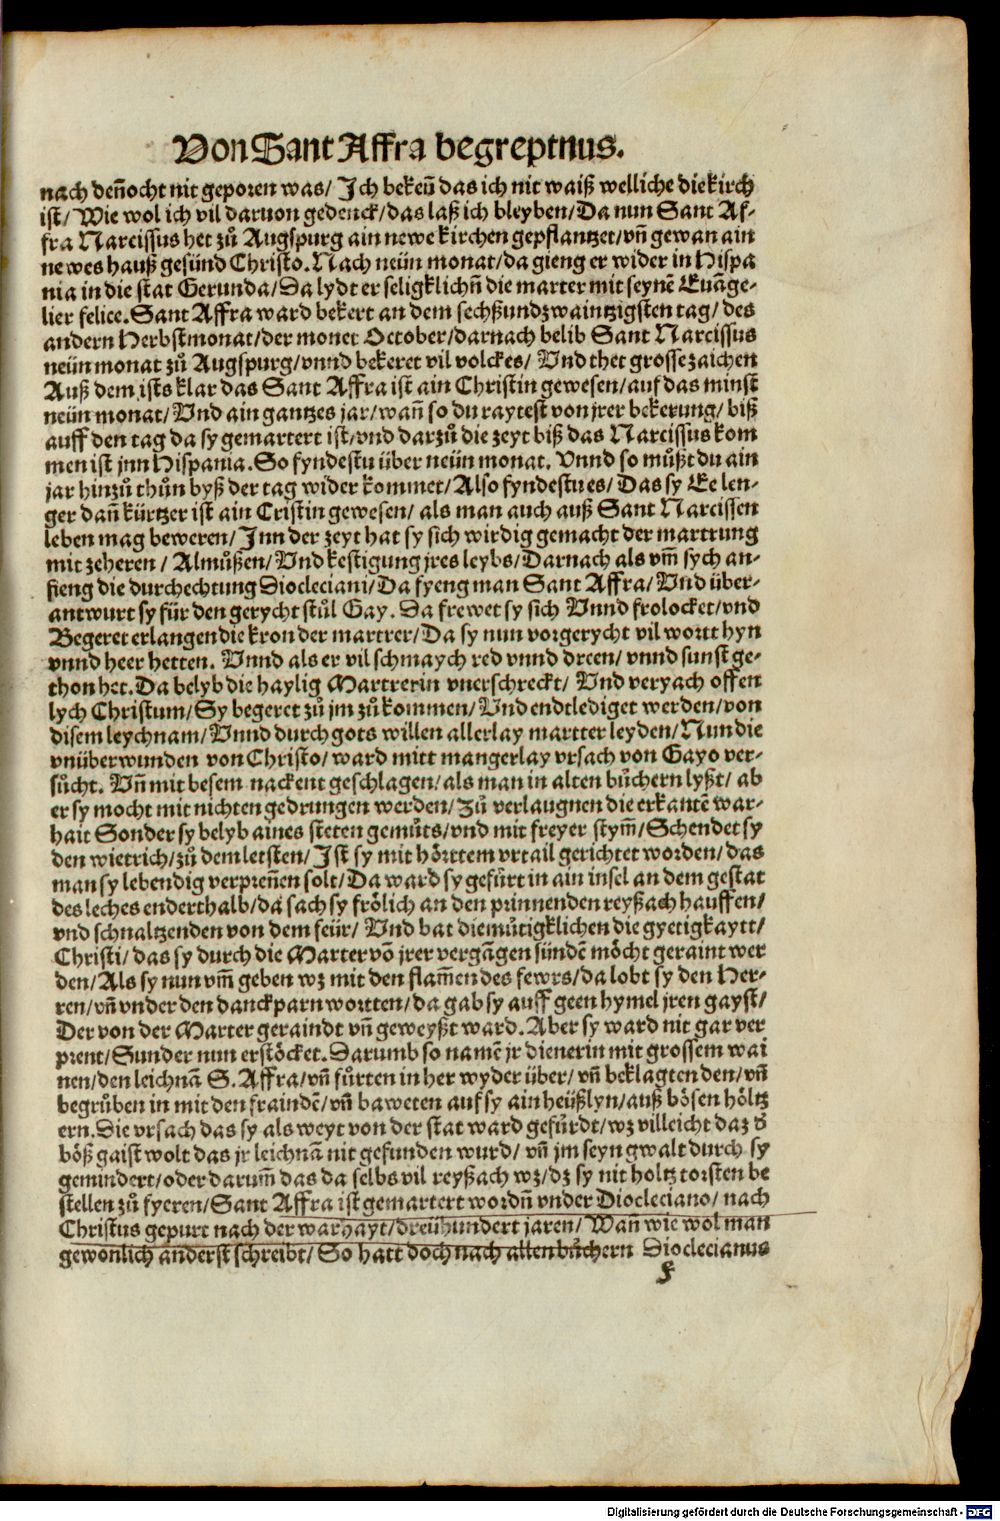 Von Sant Affra begreptnus.
nach deñocht nit geporen was/ Ich bekeñ das ich nit waiß welliche die kirch
ist/ Wie wol ich vil daruon gedenck/ das laß ich bleyben/ Da nun Sant Af-
fra Narcissus het zů Augspurg ain newe kirchen gepflantzet/ vñ gewan ain
newes hauß gesünd Christo. Nach neün monat/ da gieng er wider in Hispa
nia in die stat Gerunda/ Da lydt er seligklichñ die marter mit seynē Euāge-
lier felice. Sant Affra ward bekert an dem sechßundzwaintzigsten tag/ des
andern Herbstmonat/ der monet October/ darnach belib Sant Narcissus
neün monat zů Augspurg/ vnnd bekeret vil volckes/ Vnd thet grosse zaichen
Auß dem ists klar das Sant Affra ist ain Christin gewesen/ auf das minst
neün monat/ Vnd ain gantzes jar/ wañ so du raytest von jrer bekerung/ biß
auff den tag da sy gemartert ist/ vnd darzů die zeyt biß das Narcissus kom
men ist jnn Hispania. So fyndestu über neün monat. Vnnd so můßt du ain
jar hinzů thůn byß der tag wider kommet/ Also fyndestu es/ Das sy Ee len-
ger dañ kürtzer ist ain Cristin gewesen/ als man auch auß Sant Narcissen
leben mag beweren/ Inn der zeyt hat sy sich wirdig gemacht der martrung
mit zeheren / Almůßen/ Vnd kestigung jres leybs/ Darnach als vm̃ sych an-
fieng die durchechtung Diocleciani/ Da fyeng man Sant Affra/ Vnd über-
antwurt sy für den gerycht stůl Gay. Da frewet sy sich Vnnd frolocket/ vnd
Begeret erlangen die kron der martrer/ Da sy nun vorgerycht vil wortt hyn
vnnd heer hetten. Vnnd als er vil schmaych red vnnd dreen/ vnnd sunst ge-
thon het. Da belyb die haylig Martrerin vnerschreckt/ Vnd veryach offen
lych Christum/ Sy begeret zů jm zů kommen/ Vnd endtlediget werden/ von
disem leychnam/ Vnnd durch gots willen allerlay martter leyden/ Nun die
vnüberwunden von Christo/ ward mitt mangerlay vrsach von Gayo ver-
sůcht. Vñ mit besem nackent geschlagen/ als man in alten bůchern lyßt/ ab
er sy mocht mit nichten gedrungen werden/ Zů verlaugnen die erkantē war-
hait Sonder sy belyb aines steten gemůts/ vnd mit freyer stym̃/ Schendet sy
den wietrich/ zů dem letsten/ Ist sy mit hörttem vrtail gerichtet worden/ das
man sy lebendig verpreñen solt/ Da ward sy gefürt in ain insel an dem gestat
des leches enderthalb/ da sach sy frölich an den prinnenden reyßach hauffen/
vnd schnaltzenden von dem feür/ Vnd bat diemůtigklichen die gyetigkaytt/
Christi/ das sy durch die Marter vō jrer vergāgen sündē möcht geraint wer
den/ Als sy nun vm̃ geben wz mit den flam̃en des fewrs/ da lobt sy den Her-
ren/ vñ vnder den danckparn wortten/ da gab sy auff geen hymel jren gayst/
Der von der Marter geraindt vñ geweyßt ward. Aber sy ward nit gar ver
prent/ Sunder nun erstöcket. Darumb so namē jr dienerin mit grossem wai
nen/ den leichnā S. Affra/ vñ fürten in her wyder über/ vñ beklagten den/ vñ
begrůben in mit den fraindē/ vñ baweten auf sy ain heüßlyn/ auß bösen höltz
ern. Die vrsach das sy als weyt von der stat ward gefürdt/ wz villeicht daz d̕
böß gaist wolt das jr leichnā nit gefunden wurd/ vñ jm seyn gwalt durch sy
gemindert/ oder darum̃ das da selbs vil reyßach wz/ dz sy nit holtz torsten be
stellen zů fyeren/ Sant Affra ist gemartert wordñ vnder Diocleciano/ nach
Christus gepurt nach der warhayt/ dreühundert jaren/ Wañ wie wol man
gewonlich anderst schreibt/ So hatt doch nach alten bůchern Dioclecianus
f
Digitalisierung gefördert durch die Deutsche Forschungsgemeinschaft - DFG